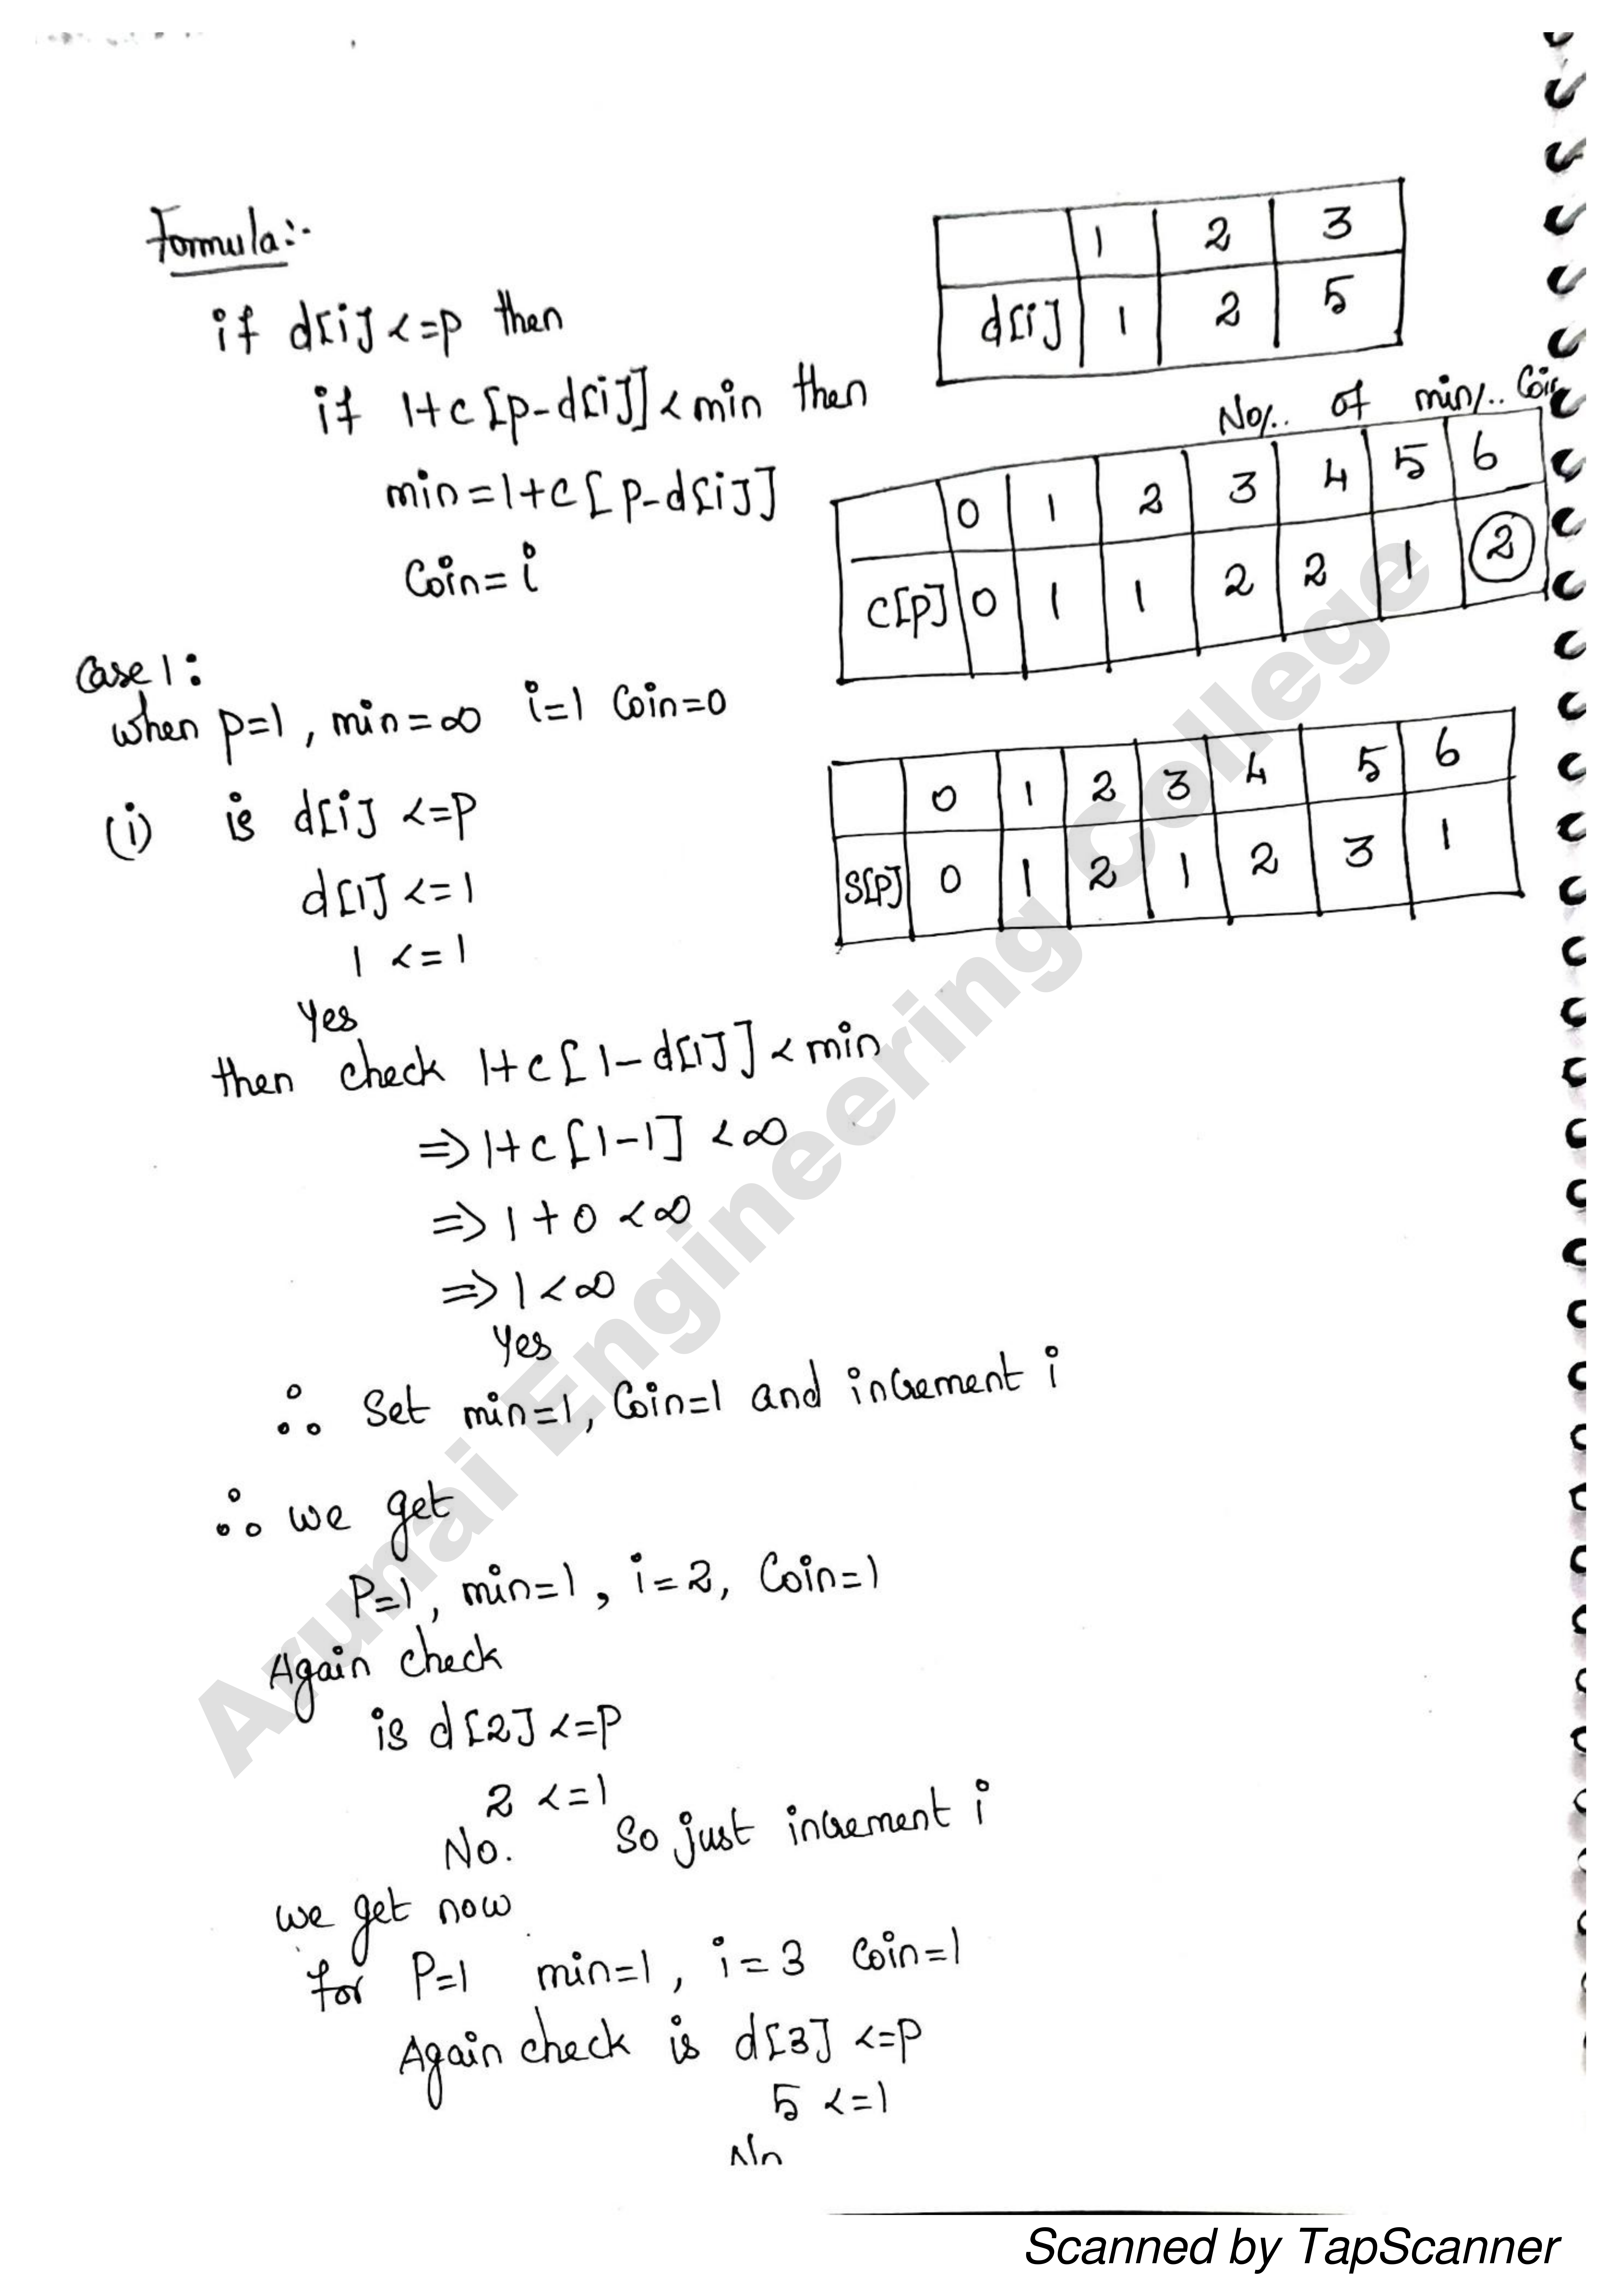 Formula:-
if d[i] <=p then
if 1+c[p-d[i]] < min then
min=1+c[p-d[i]]
Coin=i
1 2 3
d[i] 1 2 5
No/.. of min/.. Coin
0 1 2 3 4 5 6
C[P] 0 1 1 2 2 1 2
0 1 2 3 4 5 6
S[P] 0 1 2 1 2 3 1
Case 1:
when p=1, min=∞ i=1 Coin=0
(i) is d[i] <=p
d[1] <=1
1 <=1
Yes
then check 1+c[1-d[1]] < min
=> 1+c[1-1] <∞
=> 1+0 <∞
=> 1<∞
Yes
∴ Set min=1, Coin=1 and increment i
∴ we get
P=1, min=1, i=2, Coin=1
Again check
is d[2] <=P
2 <=1
No. So just increment i
we get now
for P=1 min=1, i=3 Coin=1
Again check is d[3] <=P
5 <=1
No
Arunai Engineering College
Scanned by TapScanner